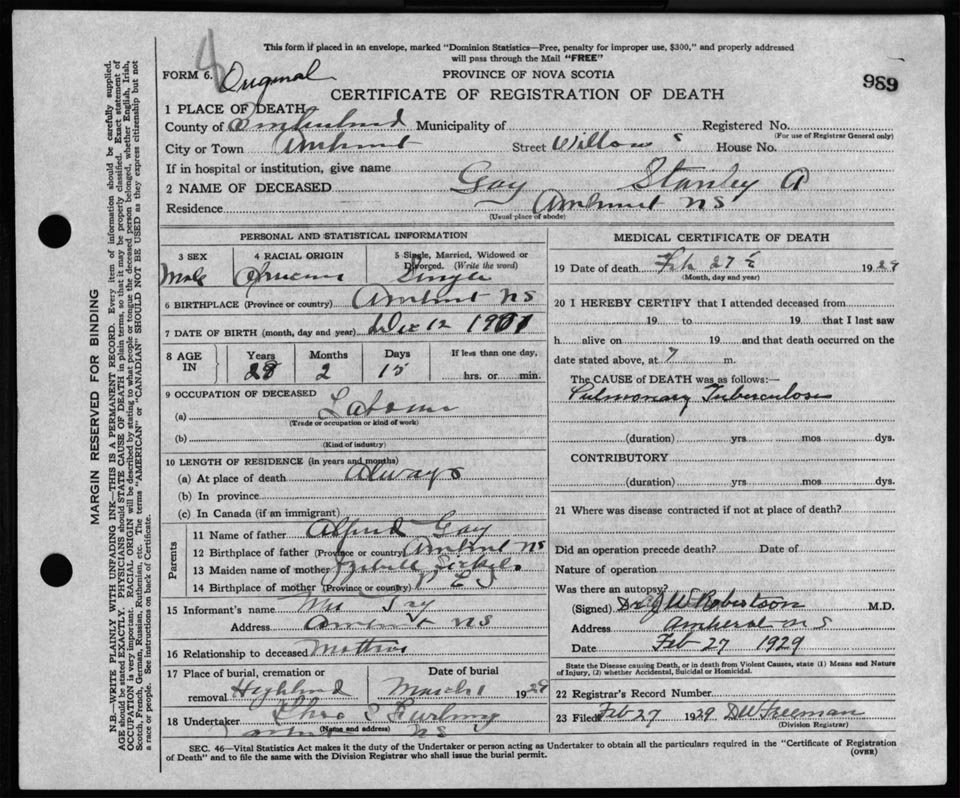 This form if placed in an envelope, marked "Dominion Statistics—Free, penalty for improper use, $300," and properly addressed
will pass through the Mail "FREE"
FORM 6. Original
PROVINCE OF NOVA SCOTIA
989
CERTIFICATE OF REGISTRATION OF DEATH
1 PLACE OF DEATH
County of Cumberland Municipality of Registered No.
(For use of Registrar General only)
City or Town Amherst Street Willow S House No.
If in hospital or institution, give name
2 NAME OF DECEASED Gay Stanley A
Residence Amherst NS
(Usual place of abode)
PERSONAL AND STATISTICAL INFORMATION
3 SEX 4 RACIAL ORIGIN 5 Single, Married, Widowed or Divorced. (Write the word)
Male Single
6 BIRTHPLACE (Province or country) Amherst NS
7 DATE OF BIRTH (month, day and year) Dec 12 1901
8 AGE IN Years Months Days If less than one day,
28 2 15 hrs. or min.
9 OCCUPATION OF DECEASED
(a) Laborer
(Trade or occupation or kind of work)
(b)
(Kind of industry)
10 LENGTH OF RESIDENCE (in years and months)
(a) At place of death Always
(b) In province
(c) In Canada (if an immigrant)
Parents
11 Name of father Alfred Gay
12 Birthplace of father (Province or country) Amherst NS
13 Maiden name of mother
14 Birthplace of mother (Province or country)
15 Informant's name Mrs Gay
Address Amherst NS
16 Relationship to deceased Mother
17 Place of burial, cremation or removal Highland
Date of burial March 1 1929
18 Undertaker
(Name and address)
Amherst NS
MEDICAL CERTIFICATE OF DEATH
19 Date of death Feb 27 1929
(Month, day and year)
20 I HEREBY CERTIFY that I attended deceased from
19 to 19 that I last saw
h alive on 19 and that death occurred on the
date stated above, at 7 m.
The CAUSE of DEATH was as follows:—
Pulmonary Tuberculosis
(duration) yrs mos dys.
CONTRIBUTORY
(duration) yrs mos dys.
21 Where was disease contracted if not at place of death?
Did an operation precede death? Date of
Nature of operation
Was there an autopsy?
(Signed) Dr J W Robertson M.D.
Address Amherst N S
Date Feb 27 1929
State the Disease causing Death, or in death from Violent Causes, state (1) Means and Nature
of Injury, (2) whether Accidental, Suicidal or Homicidal.
22 Registrar's Record Number
23 Filed Feb 27 1929 DW Freeman
(Division Registrar)
SEC. 46—Vital Statistics Act makes it the duty of the Undertaker or person acting as Undertaker to obtain all the particulars required in the "Certificate of Registration
of Death" and to file the same with the Division Registrar who shall issue the burial permit.
(OVER)
MARGIN RESERVED FOR BINDING
N.B.—WRITE PLAINLY WITH UNFADING INK—THIS IS A PERMANENT RECORD. Every item of information should be carefully supplied.
AGE should be stated EXACTLY. PHYSICIANS should STATE CAUSE OF DEATH in plain terms, so that it may be properly classified. Exact statement of
OCCUPATION is very important. RACIAL ORIGIN will be described by stating to what people or tongue the deceased person belonged, whether English, Irish,
Scotch, French, German, Russian, Ruthenian, etc. The terms "AMERICAN" or "CANADIAN" SHOULD NOT BE USED as they express citizenship but not
a race or people. See instructions on back of Certificate.